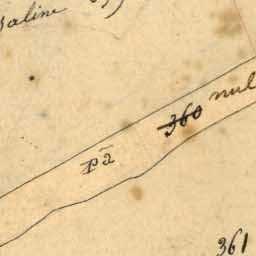 saline
360 nul
pã
361